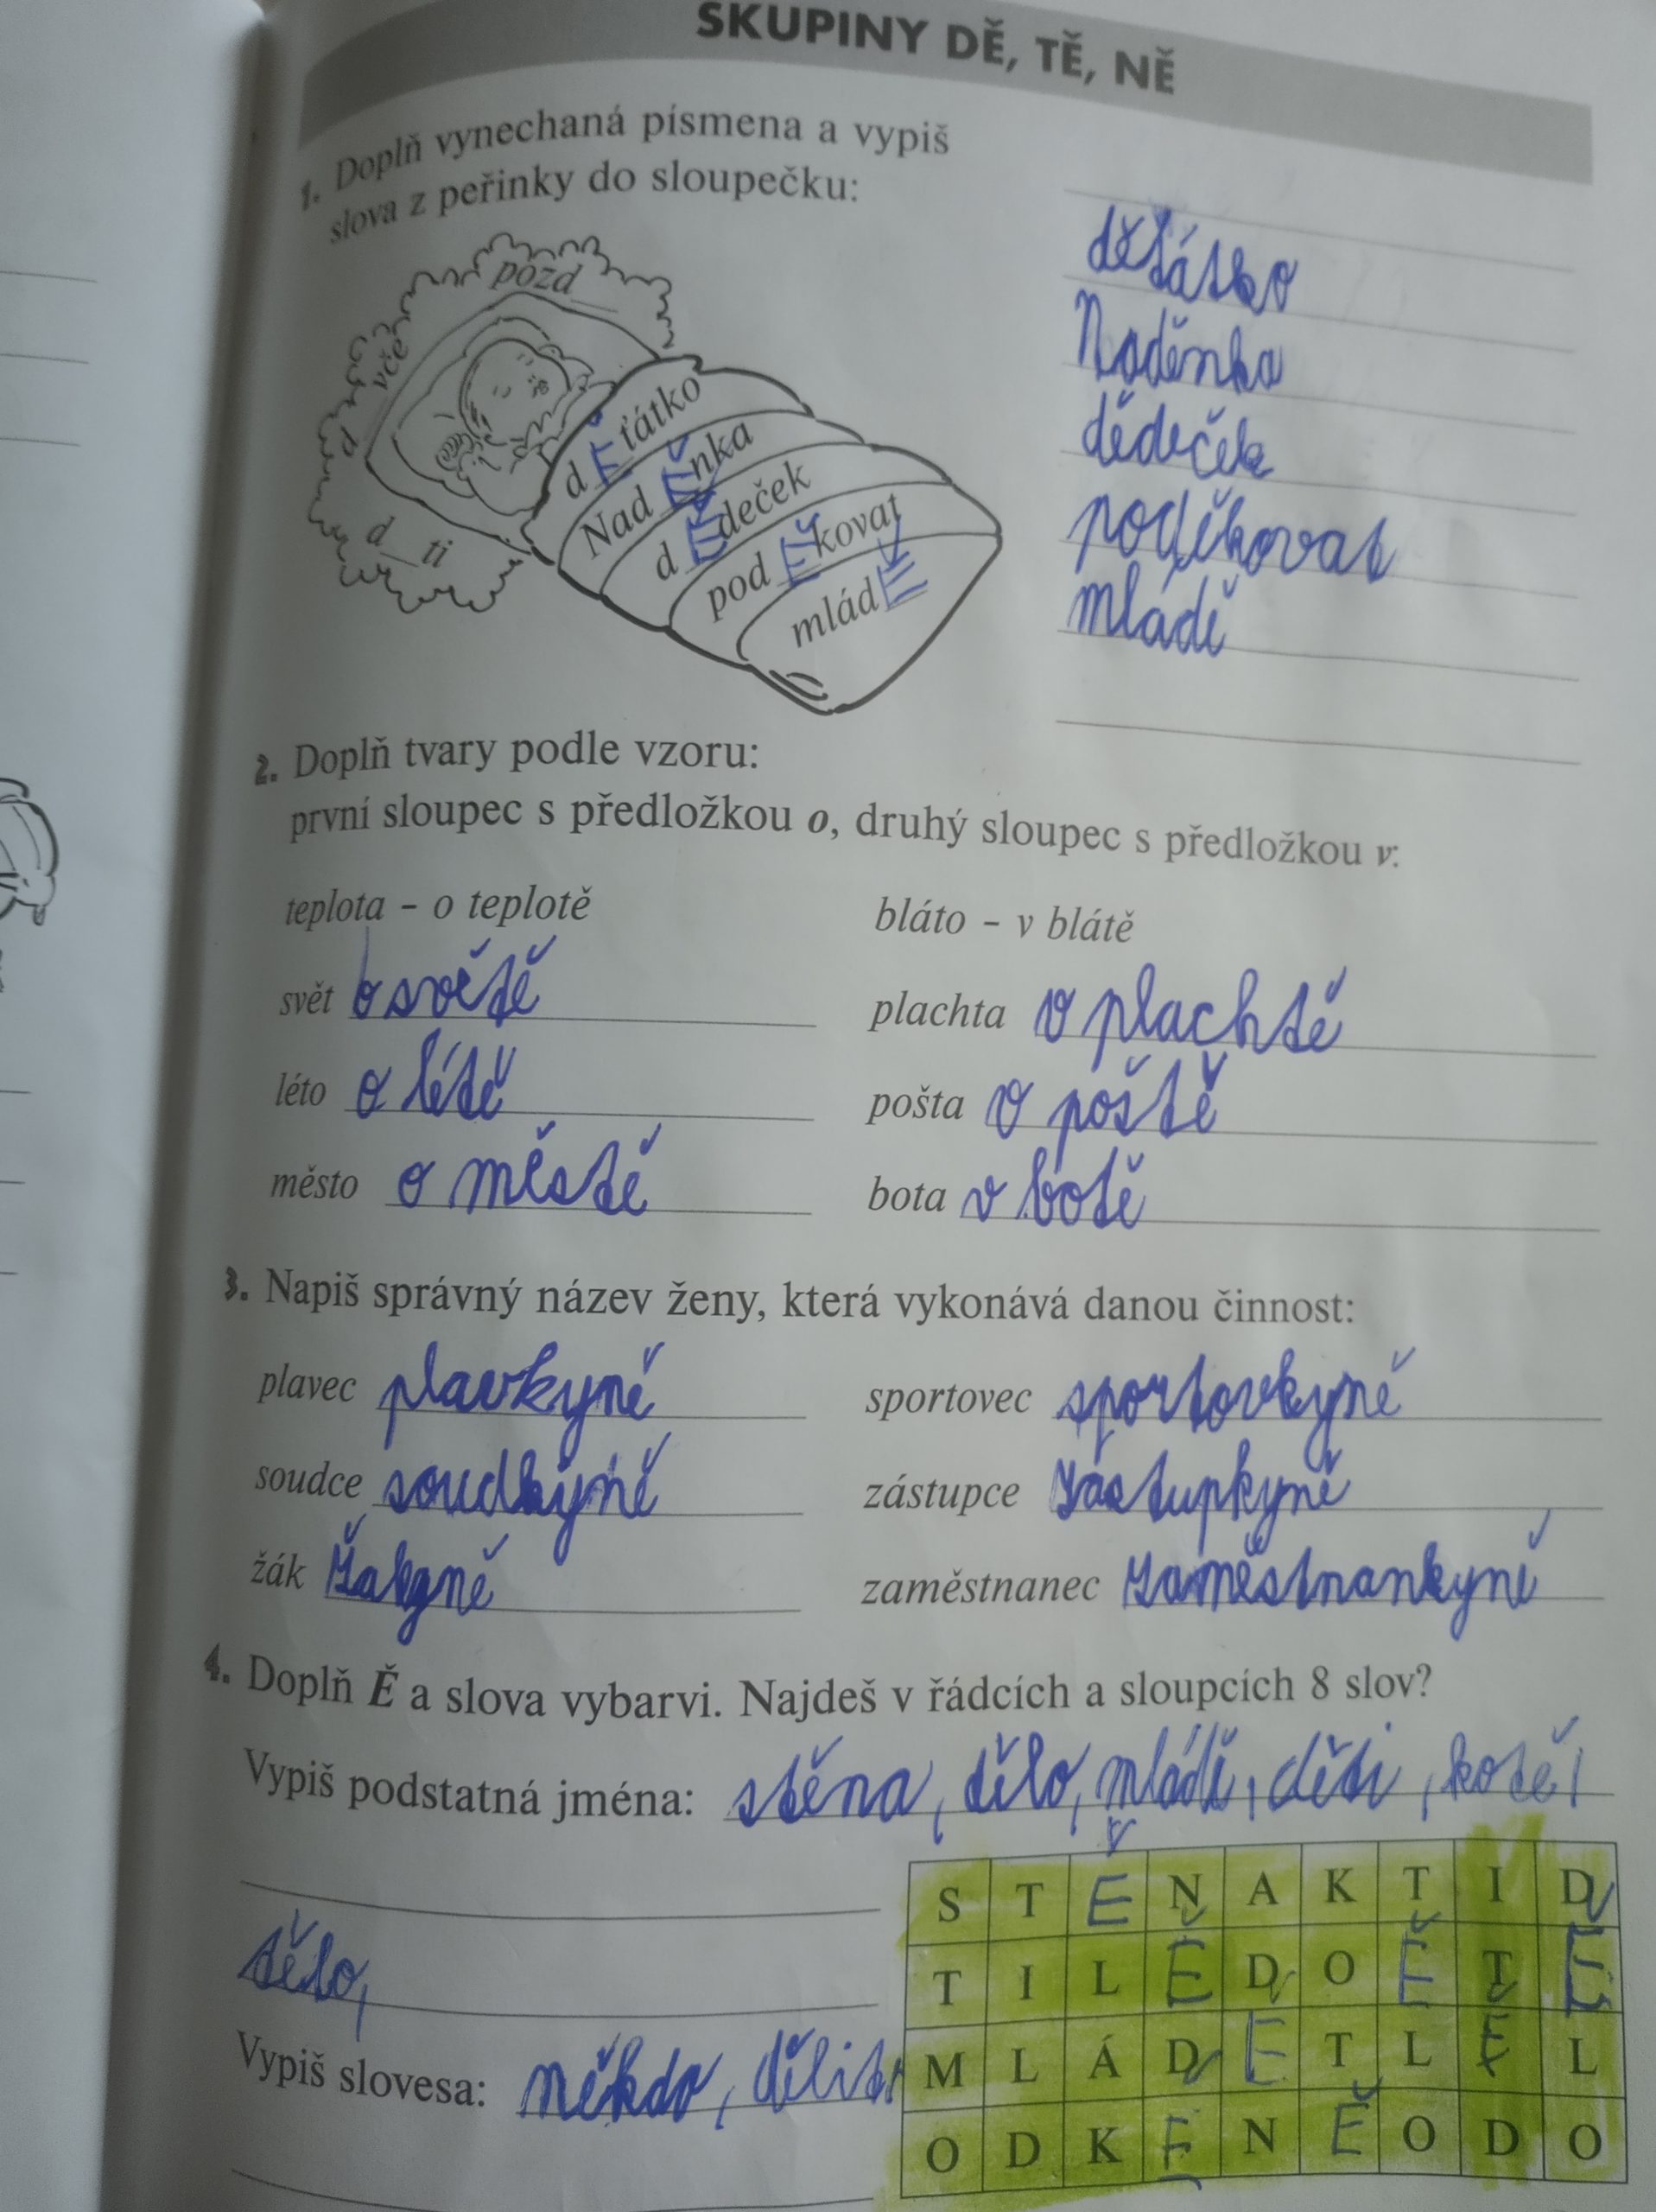 SKUPINY DĚ, TĚ, NĚ
1. Doplň vynechaná písmena a vypiš
slova z peřinky do sloupečku:
pozd__
vče
d
d__ti
dĚťátko
NadĚnka
dĚdeček
podĚkovat
mládĚ
děťátko
Naděnka
dědeček
poděkovat
mládě
2. Doplň tvary podle vzoru:
první sloupec s předložkou o, druhý sloupec s předložkou v:
teplota – o teplotě bláto – v blátě
svět o světě plachta v plachtě
léto o létě pošta v poště
město o městě bota v botě
3. Napiš správný název ženy, která vykonává danou činnost:
plavec plavkyně sportovec sportovkyně
soudce soudkyně zástupce zástupkyně
žák žakyně zaměstnanec zaměstnankyně
4. Doplň Ě a slova vybarvi. Najdeš v řádcích a sloupcích 8 slov?
Vypiš podstatná jména: stěna, dělo, mládě, děti, kotě,
tělo,
Vypiš slovesa: někdo, dělit
S T Ě N A K T I D
T I L Ě D O Ě T Ě
M L Á D Ě T L Ě L
O D K Ě N Ě O D O